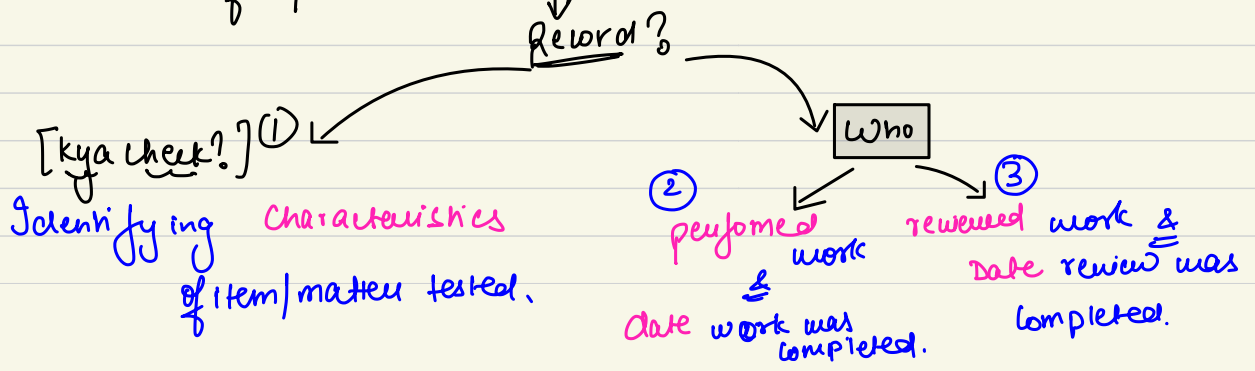 Record?
[kya check?] ①
Who
Identifying characteristics
of item/matter tested.
②
performed
work
&
date work was
completed.
③
reviewed work &
Date review was
completed.